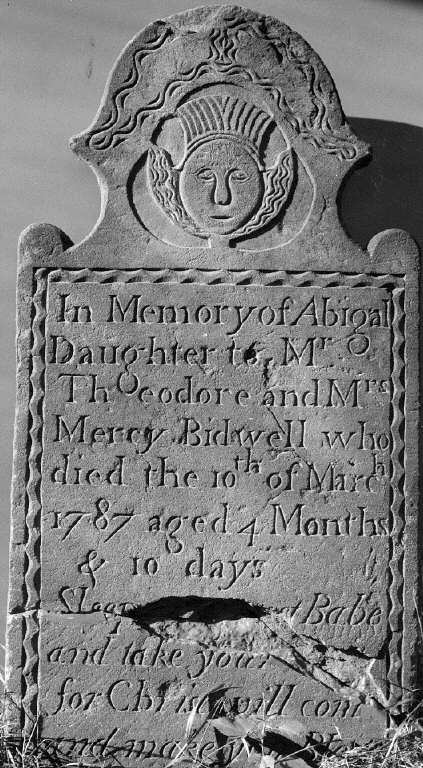 In Memory of Abigal
Daughter to Mr
Theodore and Mrs
Mercy Bidwell who
died the 10th of March
1787 aged 4 Months
& 10 days
Babe
and take your
for Christ will com
and make